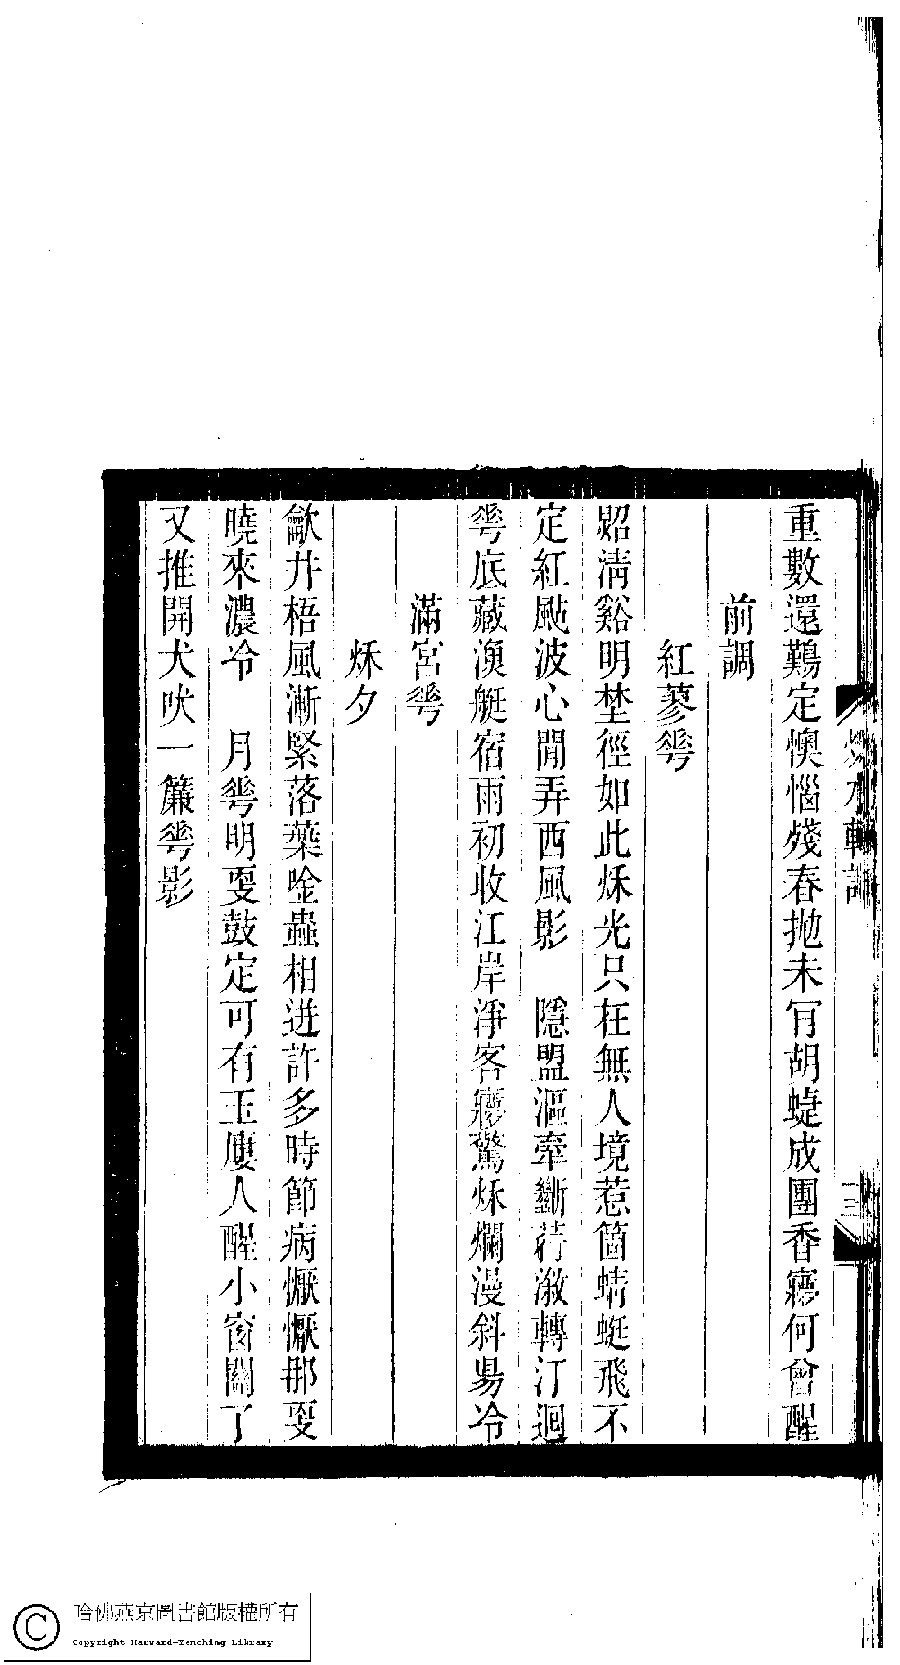 重數還鷄定懊惱殘春拋未肎胡蜨成團香寱何曾醒
前調
紅蓼蕚
炤淸谿明埜徑如此秌光只在無人境惹箇蜻蜓飛不
定紅颭波心閒弄西風影　隱盟漚牽斷荇潋轉汀迴
蕚底藏漁艇宿雨初收江岸淨客寱驚秌爛漫斜昜冷
滿宮蕚
秌夕
歙井梧風漸緊落葉唫蟲相迸許多時節病懨懨那㪅
曉來濃冷　月蕚明㪅鼓定可有玉廔人醒小窗關了
又推開犬吠一簾蕚影
水軒詞
三
哈佛燕京圖書館版權所有
Copyright Harvard-Yenching Library